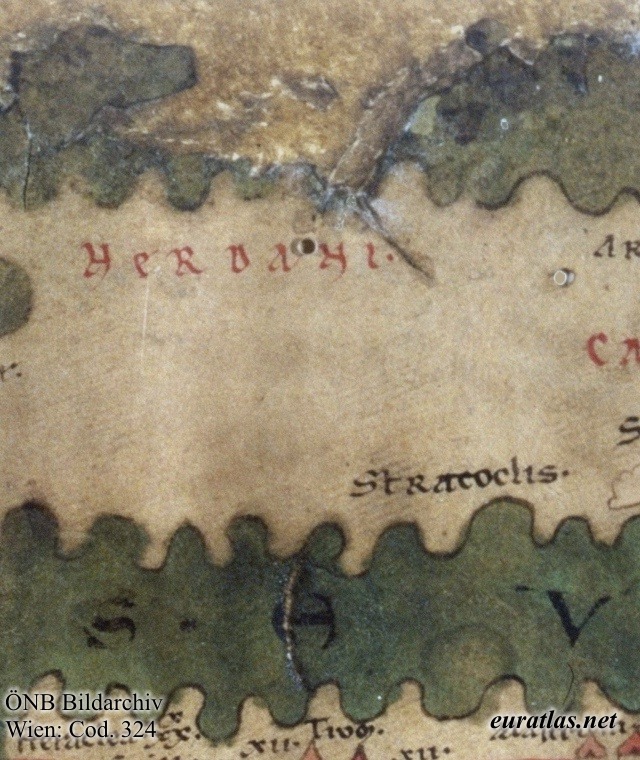 NERDANI.
AR
CA
S
r.
Stratoclis.
S · A V
xx.
xii. Tiog.
xii.
ÖNB Bildarchiv
Wien: Cod. 324
euratlas.net